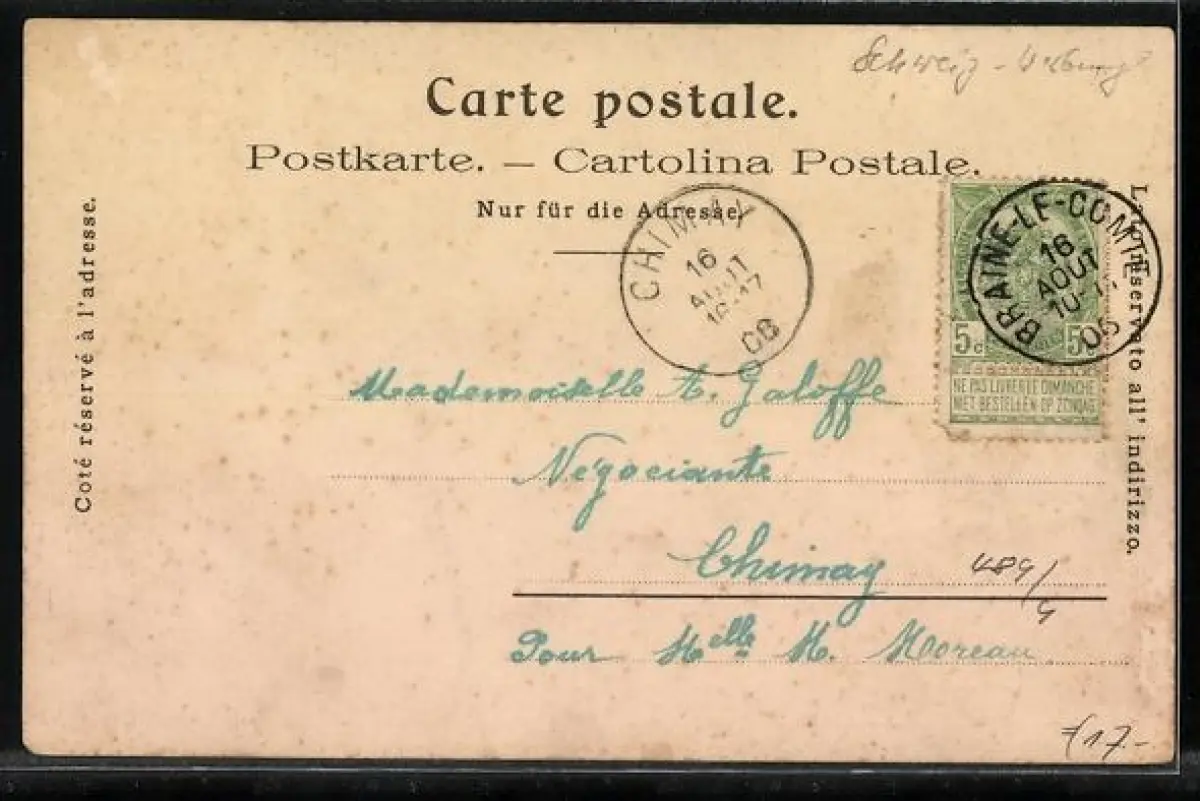 Schweiz -
Carte postale.
Postkarte. — Cartolina Postale.
Nur für die Adresse.
Coté réservé à l'adresse.
Lato riservato all' indirizzo.
CHIMAY
16
AOUT
16-17
06
BRAINE-LE-COMTE
16
AOUT
10-11
06
5c 5c
NE PAS LIVRER LE DIMANCHE
NIET BESTELLEN OP ZONDAG
Mademoiselle A. Galoffe
Négociante
Chimay
484/4
Pour Melle M. Moreau
€17.-